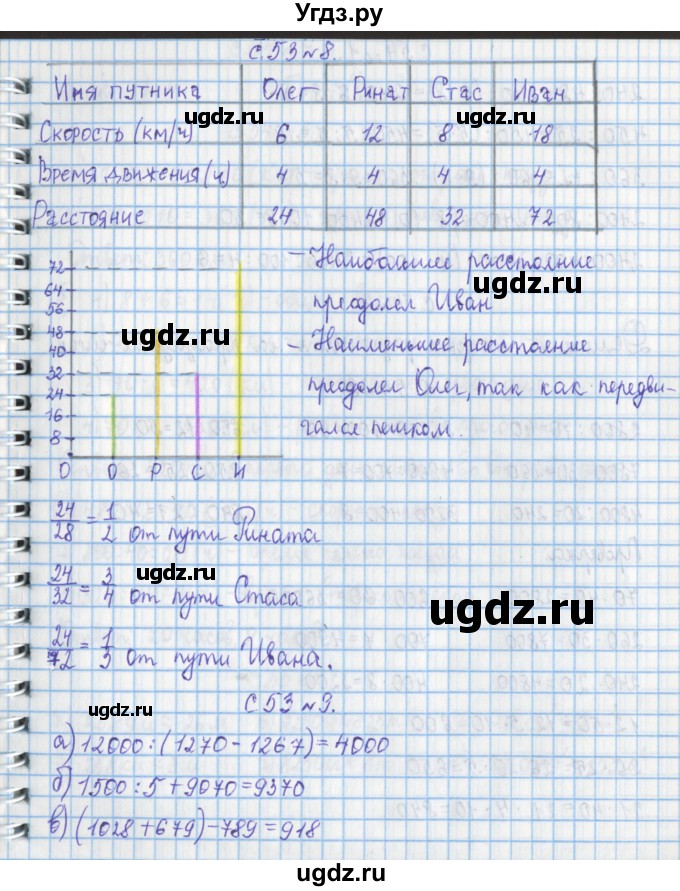 Угдз.ру
С.53 №8.
Имя путника Олег Ринат Стас Иван
ugdz.ru ugdz.ru
Скорость (км/ч) 6 12 8 18
Время движения (ч) 4 4 4 4
Расстояние 24 48 32 72
72
64
56
48
40
32
24
16
8
0 О Р С И
ugdz.ru
– Наибольшее расстояние
ugdz.ru
преодолел Иван
– Наименьшее расстояние
преодолел Олег, так как передви-
гался пешком.
24/28 = 1/2 от пути Рината
ugdz.ru
ugdz.ru
24/32 = 3/4 от пути Стаса
ugdz.ru
24/72 = 1/3 от пути Ивана.
С 53 №9.
а) 12000 : (1270 - 1267) = 4000
ugdz.ru
б) 1500 : 5 + 9070 = 9370
в) (1028 + 679) - 789 = 918
ugdz.ru